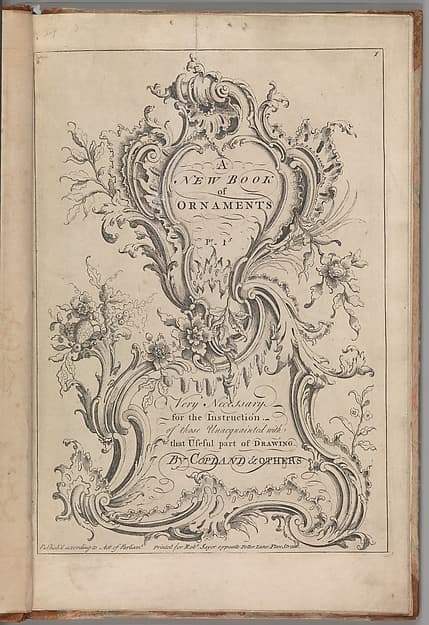 1
A
NEW BOOK
of
ORNAMENTS
Pt. 1st
Very Necessary
for the Instruction
of those Unacquainted with
that Useful part of DRAWING.
By COPLAND & OTHERS
Publish'd according to Act of Parliamt. Printed for Robt. Sayer opposite Fetter Lane Fleet Street